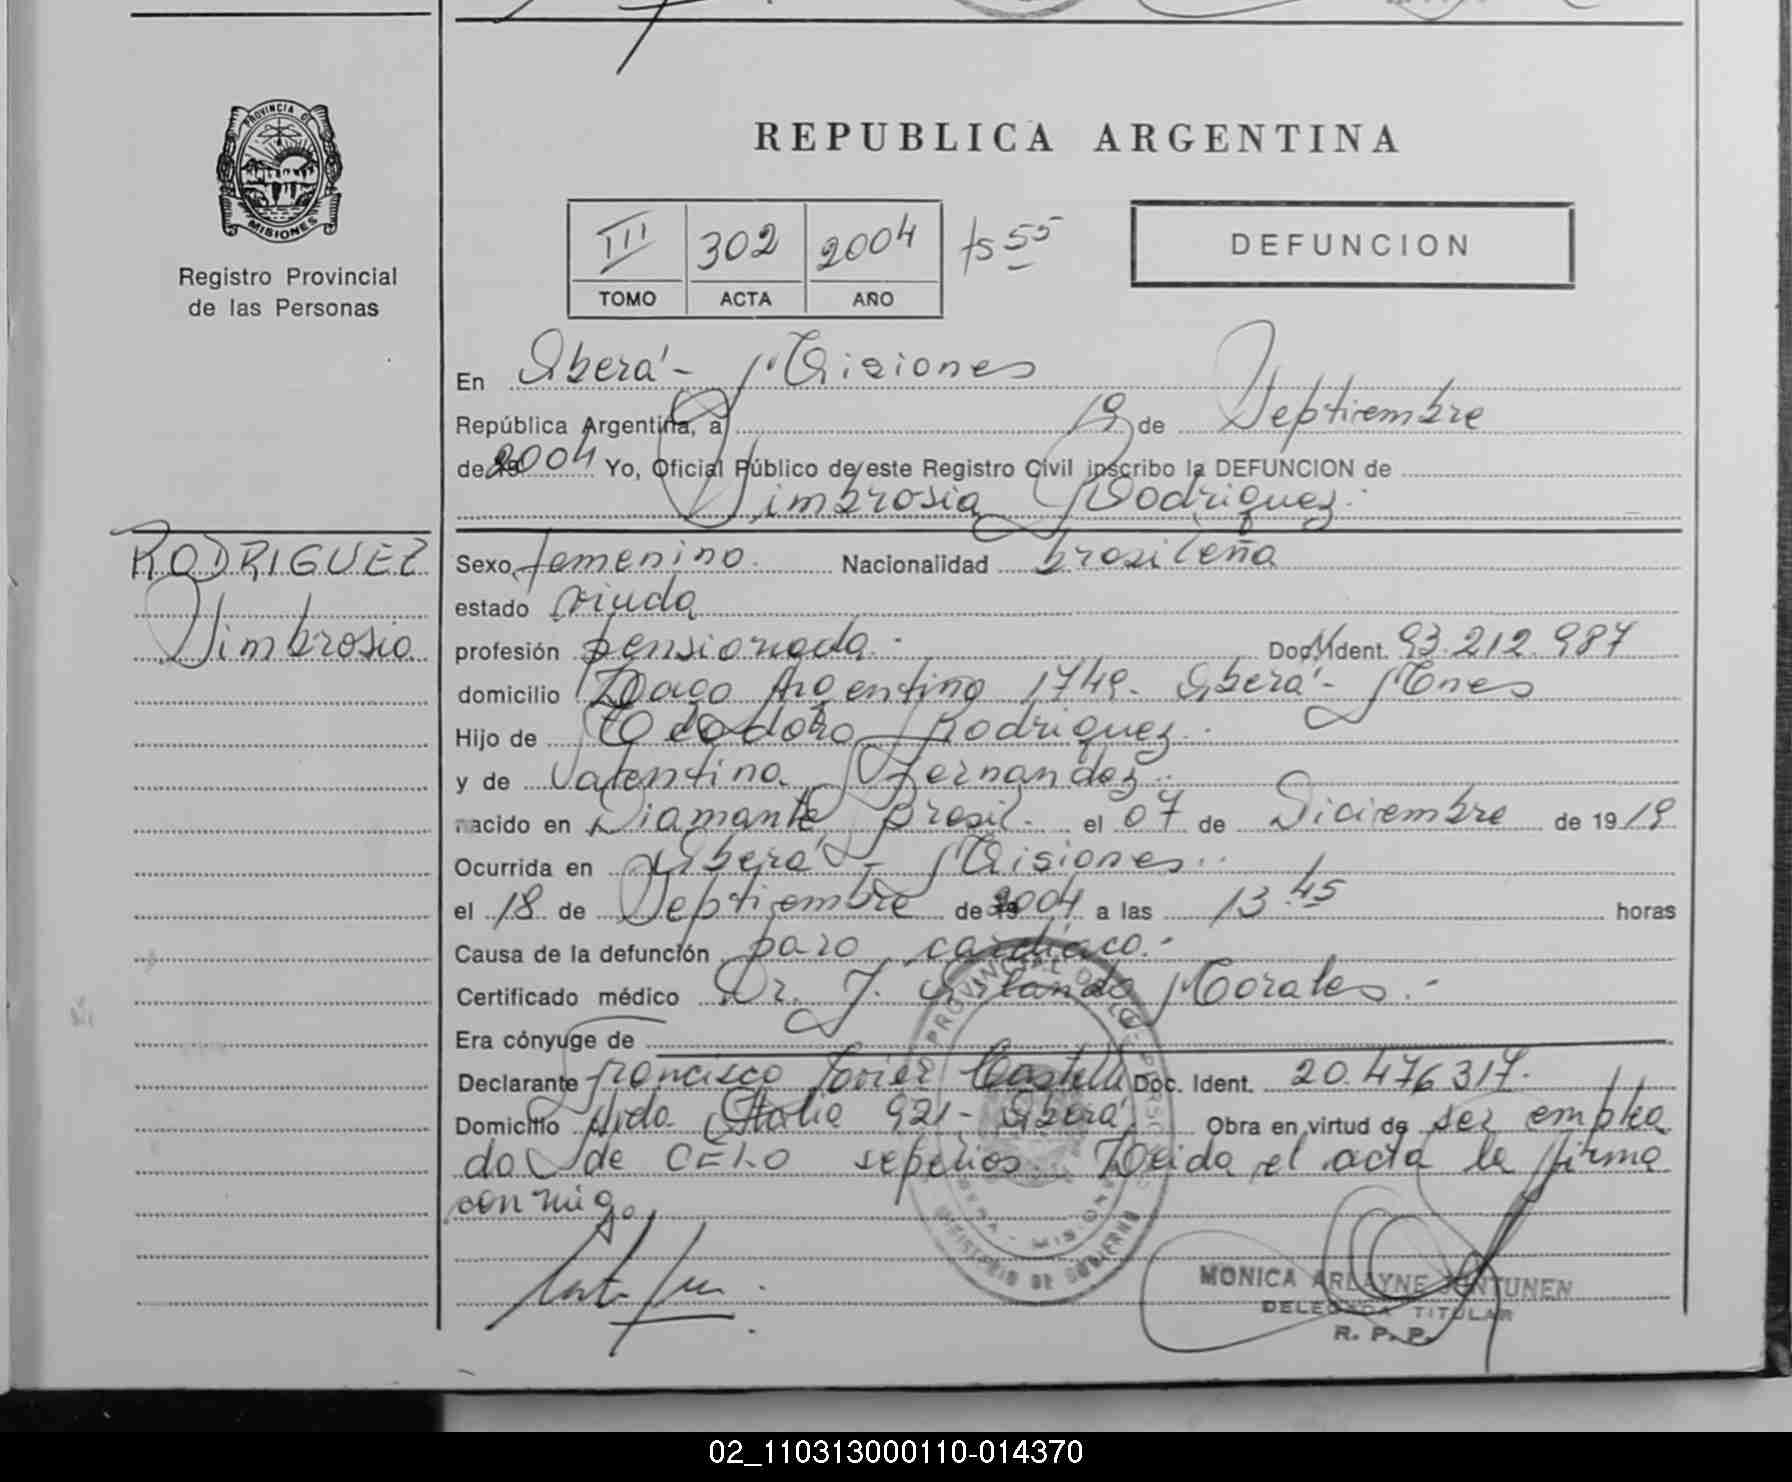 PROVINCIA DE
MISIONES
Registro Provincial
de las Personas
REPUBLICA ARGENTINA
III 302 2004 fs 55
TOMO ACTA AÑO
DEFUNCION
En Oberá - Misiones
República Argentina, a 19 de Septiembre
de 2004 Yo, Oficial Público de este Registro Civil inscribo la DEFUNCION de
Simbrosia Rodriguez.
RODRIGUEZ
Simbrosia
Sexo femenino. Nacionalidad brasileña
estado viuda
profesión pensionada.- Doc. Ident. 93.212.987
domicilio Lago Argentino 1749. Oberá - Mnes
Hijo de Teodoro Rodriguez.
y de Valentina Fernandez.
nacido en Diamante, Brasil. el 07 de Diciembre de 1919
Ocurrida en Oberá - Misiones.
el 18 de Septiembre de 2004 a las 13.45 horas
Causa de la defunción paro cardíaco.-
Certificado médico Dr. J. Orlando Morales.-
Era cónyuge de
Declarante Francisco Javier Doc. Ident. 20.476317.
Domicilio Avda. Italia 921 - Oberá. Obra en virtud de ser emplea
do de CELO sepelios. Leida el acta la firma
conmigo.
MONICA ARLAYNE
DELEGADA TITULAR
R. P. P.
MINISTERIO DE GOBIERNO
02_110313000110-014370